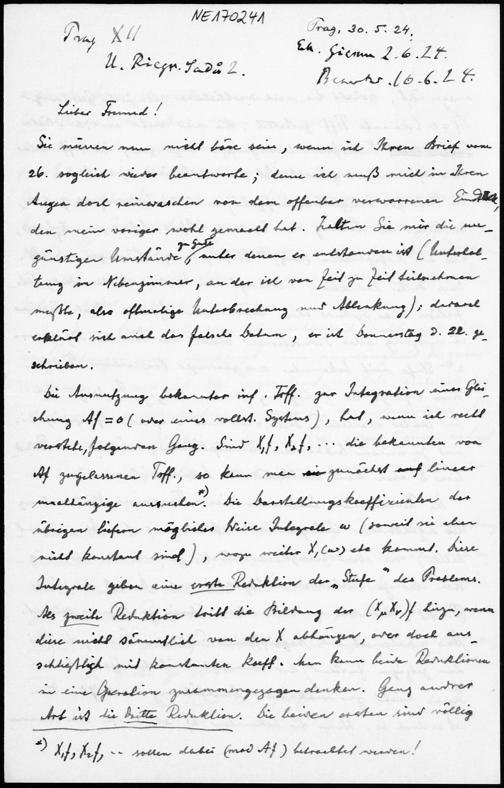 NE170241
Prag, 30. 5. 24.
Prag XII
Erh. Giessen 2.6.24.
U. Riegr. Sadů 2.
Beantw. 16.6.24.
Lieber Freund!
Sie müssen nun nicht böse sein, wenn ich Ihren Brief vom
26. sogleich wieder beantworte; denn ich muß mich in Ihren
Augen doch reinwaschen von dem offenbar verworrenen Eindruck,
den mein voriger wohl gemacht hat. Halten Sie mir die un-
günstigen Umstände zu Gute, unter denen er entstanden ist (Unterhal-
tung im Nebenzimmer, an der ich von Zeit zu Zeit teilnehmen
mußte, also oftmalige Unterbrechung und Ablenkung); daraus
erklärt sich auch das falsche Datum, er ist Donnerstag d. 22. ge-
schrieben.
Die Ausnutzung bekannter inf. Tff. zur Integration einer Glei-
chung Af = 0 (oder eines vollst. Systems), hat, wenn ich recht
verstehe, folgenden Gang. Sind X₁f, X₂f, ... die bekannten von
Af zugelassenen Tff., so kann man zunächst linear
unabhängige aussuchen.*) Die Darstellungskoeffizienten der
übrigen liefern möglicher Weise Integrale ω (soweit sie eben
nicht konstant sind), wozu weiter X₁(ω) etc kommt. Diese
Integrale geben eine erste Reduktion der „Stufe" des Problems.
Als zweite Reduktion tritt die Bildung der (XμXν)f hinzu, wenn
diese nicht sämmtlich von den X abhängen, oder doch aus-
schließlich mit konstanten Koeff. Man kann beide Reduktionen
in eine Operation zusammengezogen denken. Ganz andrer
Art ist die dritte Reduktion. Die beiden ersten sind völlig
*) X₁f, X₂f, .. sollen dabei (mod Af) betrachtet werden!